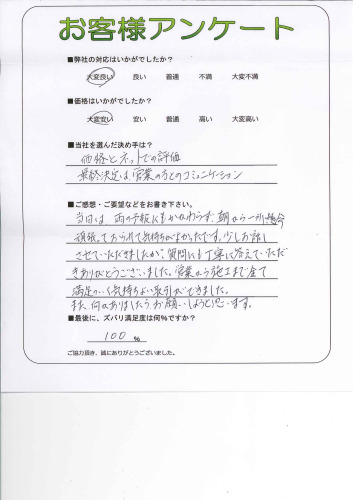 お客様アンケート
■弊社の対応はいかがでしたか?
大変良い 良い 普通 不満 大変不満
■価格はいかがでしたか?
大変安い 安い 普通 高い 大変高い
■当社を選んだ決め手は?
価格とネットでの評価
最終決定は、営業の方とのコミュニケーション
■ご感想・ご要望などをお書き下さい。
当日は、雨の予報にもかかわらず、朝から一所懸命
頑張っておられて気持ちがよかったです。少しお話し
させていただきましたが、質問にも丁寧に答えていただ
きありがとうございました。営業から施工まで全て
満足のいく気持ちよい取引ができました。
また、何かありましたら、お願いしようと思います。
■最後に、ズバリ満足度は何%ですか?
100 %
ご協力頂き、誠にありがとうございました。